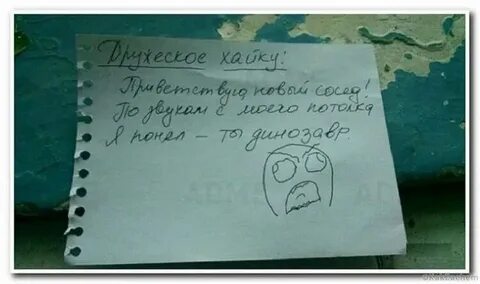 Дружеское хайку:
Приветствую новый сосед!
По звукам с моего потолка
Я понел – ты динозавр